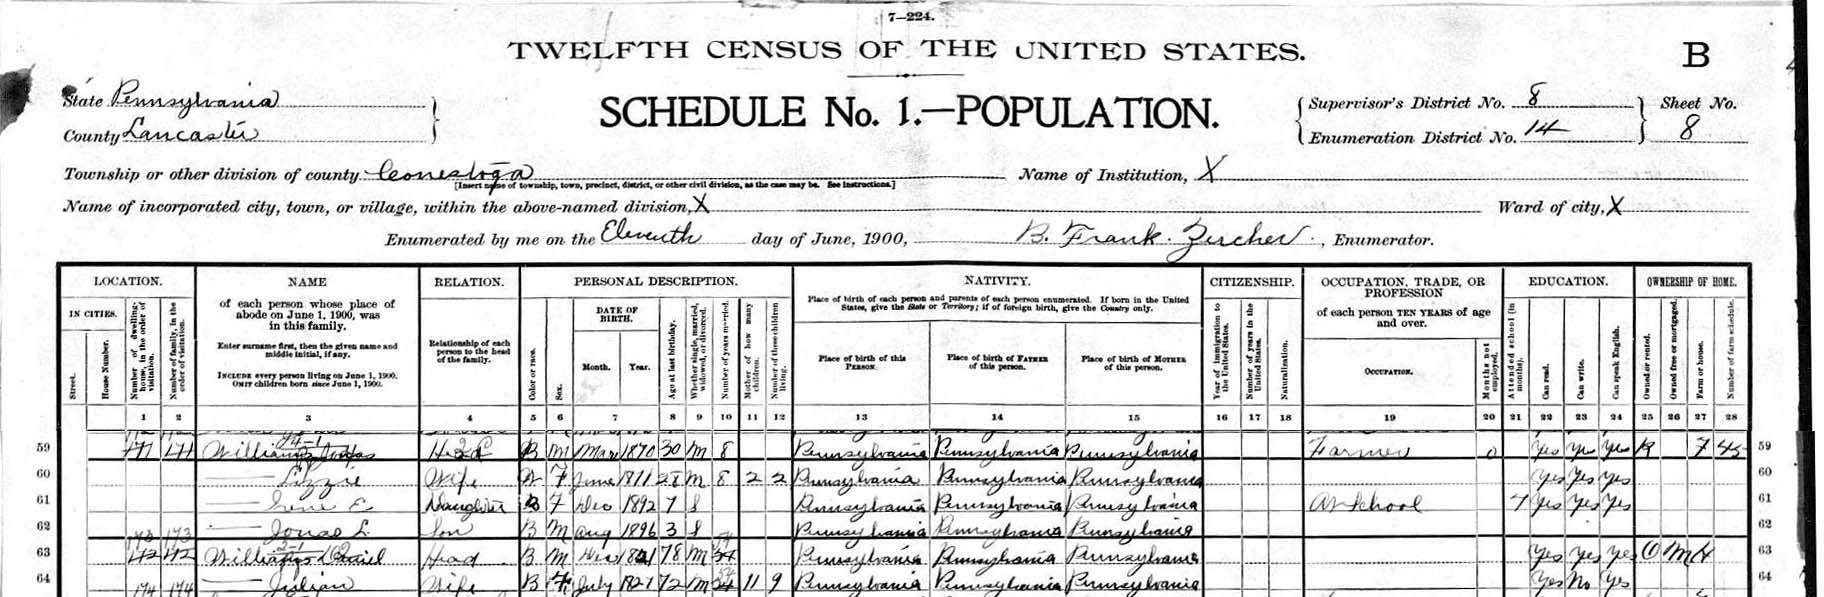 7-224.
TWELFTH CENSUS OF THE UNITED STATES.
B
State Pennsylvania
County Lancaster
SCHEDULE No. 1.—POPULATION.
Supervisor's District No. 8
Enumeration District No. 14
Sheet No.
8
Township or other division of county Conestoga
[Insert name of township, town, precinct, district, or other civil division, as the case may be. See instructions.]
Name of Institution, X
Name of incorporated city, town, or village, within the above-named division, X
Ward of city, X
Enumerated by me on the Eleventh day of June, 1900, B. Frank Zercher, Enumerator.
LOCATION. NAME RELATION. PERSONAL DESCRIPTION. NATIVITY. CITIZENSHIP. OCCUPATION, TRADE, OR PROFESSION EDUCATION. OWNERSHIP OF HOME.
IN CITIES.
Street.
House Number.
Number of dwelling-house, in the order of visitation.
Number of family, in the order of visitation.
of each person whose place of abode on June 1, 1900, was in this family.
Enter surname first, then the given name and middle initial, if any.
INCLUDE every person living on June 1, 1900.
OMIT children born since June 1, 1900.
Relationship of each person to the head of the family.
Color or race.
Sex.
DATE OF BIRTH.
Month. Year.
Age at last birthday.
Whether single, married, widowed, or divorced.
Number of years married.
Mother of how many children.
Number of these children living.
Place of birth of each person and parents of each person enumerated. If born in the United States, give the State or Territory; if of foreign birth, give the Country only.
Place of birth of this PERSON.
Place of birth of FATHER of this person.
Place of birth of MOTHER of this person.
Year of immigration to the United States.
Number of years in the United States.
Naturalization.
of each person TEN YEARS of age and over.
OCCUPATION.
Months not employed.
Attended school (in months).
Can read.
Can write.
Can speak English.
Owned or rented.
Owned free or mortgaged.
Farm or house.
Number of farm schedule.
1 2 3 4 5 6 7 8 9 10 11 12 13 14 15 16 17 18 19 20 21 22 23 24 25 26 27 28
59 171 171 Williams Head B M Mar 1870 30 M 8 Pennsylvania Pennsylvania Pennsylvania Farmer 0 Yes Yes Yes R F 45 59
60 Lizzie Wife F June 28 M 8 2 2 Pennsylvania Pennsylvania Pennsylvania Yes Yes Yes 60
61 Irene E Daughter B F Dec 1892 7 S Pennsylvania Pennsylvania Pennsylvania At School 7 Yes Yes Yes 61
62 L. Son B M Aug 1896 3 S Pennsylvania Pennsylvania Pennsylvania 62
63 Williams Daniel Head B M Dec 1821 78 M Pennsylvania Pennsylvania Pennsylvania Yes Yes Yes O M H 63
64 174 174 Wife B F July 72 M 11 9 Pennsylvania Pennsylvania Pennsylvania Yes No Yes 64